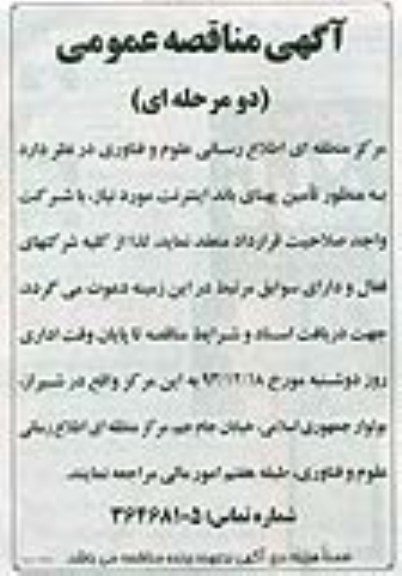 آگهی مناقصه عمومی
(دو مرحله ای)
مرکز منطقه ای اطلاع رسانی علوم و فناوری در نظر دارد
به منظور تأمین پهنای باند اینترنت مورد نیاز، با شرکت
واجد صلاحیت قرارداد منعقد نماید. لذا از کلیه شرکتهای
فعال و دارای سوابق مرتبط در این زمینه دعوت می گردد،
جهت دریافت اسناد و شرایط مناقصه تا پایان وقت اداری
روز دوشنبه مورخ ۹۳/۱۲/۱۸ به این مرکز واقع در شیراز،
بولوار جمهوری اسلامی، خیابان جام جم، مرکز منطقه ای اطلاع رسانی
علوم و فناوری، طبقه هفتم امور مالی مراجعه نمایند.
شماره تماس: ۵-۳۶۴۶۸۱
ضمناً هزینه درج آگهی برعهده برنده مناقصه می باشد.